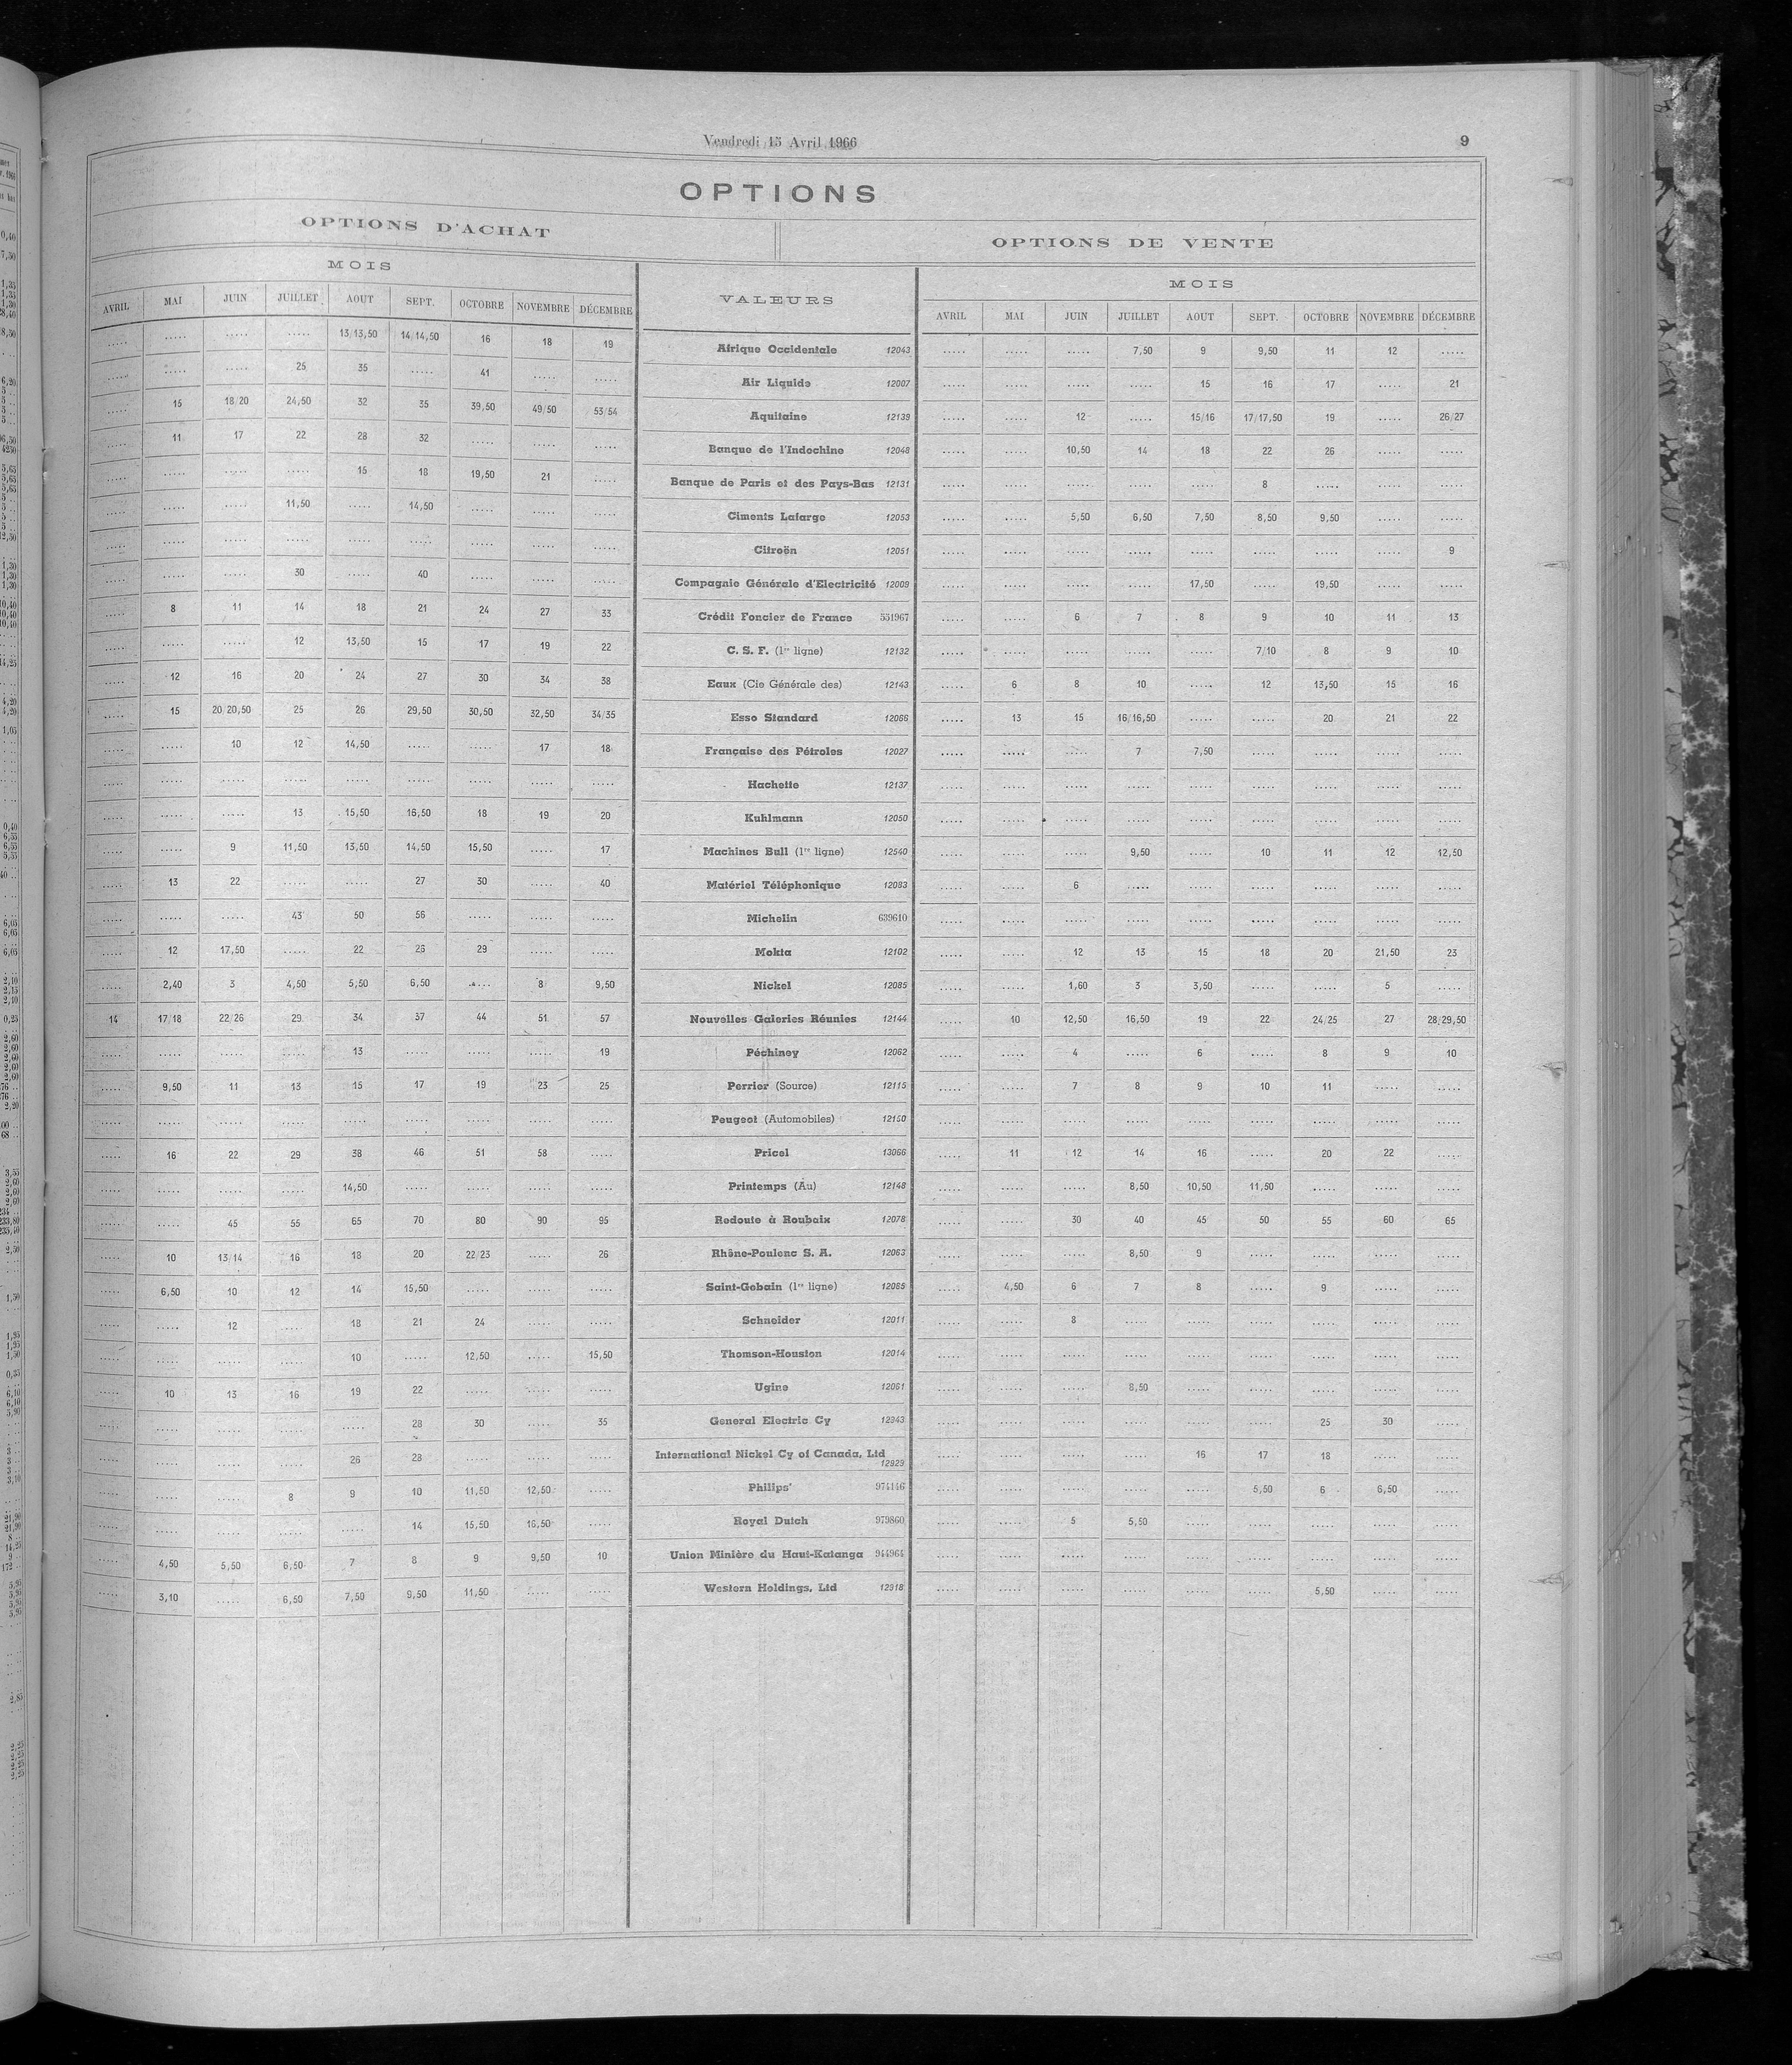 Vendredi 15 Avril 1966
9
OPTIONS
OPTIONS D'ACHAT
OPTIONS DE VENTE
MOIS
VALEURS
MOIS
AVRIL MAI JUIN JUILLET AOUT SEPT. OCTOBRE NOVEMBRE DÉCEMBRE
AVRIL MAI JUIN JUILLET AOUT SEPT. OCTOBRE NOVEMBRE DÉCEMBRE
..... ..... ..... ..... 13/13,50 14/14,50 16 18 19 Afrique Occidentale 12043 ..... ..... ..... 7,50 9 9,50 11 12 .....
..... ..... ..... 25 35 ..... 41 ..... ..... Air Liquide 12007 ..... ..... ..... ..... 15 16 17 ..... 21
..... 15 18/20 24,50 32 35 39,50 49/50 53/54 Aquitaine 12139 ..... ..... 12 ..... 15/16 17/17,50 19 ..... 26/27
..... 11 17 22 28 32 ..... ..... ..... Banque de l'Indochine 12048 ..... ..... 10,50 14 18 22 26 ..... .....
..... ..... ..... ..... 15 18 19,50 21 ..... Banque de Paris et des Pays-Bas 12131 ..... ..... ..... ..... ..... 8 ..... ..... .....
..... ..... ..... 11,50 ..... 14,50 ..... ..... ..... Ciments Lafarge 12053 ..... ..... 5,50 6,50 7,50 8,50 9,50 ..... .....
..... ..... ..... ..... ..... ..... ..... ..... ..... Citroën 12051 ..... ..... ..... ..... ..... ..... ..... ..... 9
..... ..... ..... 30 ..... 40 ..... ..... ..... Compagnie Générale d'Electricité 12009 ..... ..... ..... ..... 17,50 ..... 19,50 ..... .....
..... 8 11 14 18 21 24 27 33 Crédit Foncier de France 551967 ..... ..... 6 7 8 9 10 11 13
..... ..... ..... 12 13,50 15 17 19 22 C. S. F. (1re ligne) 12132 ..... ..... ..... ..... ..... 7/10 8 9 10
..... 12 16 20 24 27 30 34 38 Eaux (Cie Générale des) 12143 ..... 6 8 10 ..... 12 13,50 15 16
..... 15 20/20,50 25 26 29,50 30,50 32,50 34/35 Esso Standard 12066 ..... 13 15 16/16,50 ..... ..... 20 21 22
..... ..... 10 12 14,50 ..... ..... 17 18 Française des Pétroles 12027 ..... ..... ..... 7 7,50 ..... ..... ..... .....
..... ..... ..... ..... ..... ..... ..... ..... ..... Hachette 12137 ..... ..... ..... ..... ..... ..... ..... ..... .....
..... ..... ..... 13 15,50 16,50 18 19 20 Kuhlmann 12050 ..... ..... ..... ..... ..... ..... ..... ..... .....
..... ..... 9 11,50 13,50 14,50 15,50 ..... 17 Machines Bull (1re ligne) 12540 ..... ..... ..... 9,50 ..... 10 11 12 12,50
..... 13 22 ..... ..... 27 30 ..... 40 Matériel Téléphonique 12083 ..... ..... 6 ..... ..... ..... ..... ..... .....
..... ..... ..... 43 50 56 ..... ..... ..... Michelin 639610 ..... ..... ..... ..... ..... ..... ..... ..... .....
..... 12 17,50 ..... 22 26 29 ..... ..... Mokta 12102 ..... ..... 12 13 15 18 20 21,50 23
..... 2,40 3 4,50 5,50 6,50 ..... 8 9,50 Nickel 12085 ..... ..... 1,60 3 3,50 ..... ..... 5 .....
14 17/18 22/26 29 34 37 44 51 57 Nouvelles Galeries Réunies 12144 ..... 10 12,50 16,50 19 22 24/25 27 28/29,50
..... ..... ..... ..... 13 ..... ..... ..... 19 Péchiney 12062 ..... ..... 4 ..... 6 ..... 8 9 10
..... 9,50 11 13 15 17 19 23 25 Perrier (Source) 12115 ..... ..... 7 8 9 10 11 ..... .....
..... ..... ..... ..... ..... ..... ..... ..... ..... Peugeot (Automobiles) 12150 ..... ..... ..... ..... ..... ..... ..... ..... .....
..... 16 22 29 38 46 51 58 ..... Pricel 13066 ..... 11 12 14 16 ..... 20 22 .....
..... ..... ..... ..... 14,50 ..... ..... ..... ..... Printemps (Au) 12148 ..... ..... ..... 8,50 10,50 11,50 ..... ..... .....
..... ..... 45 55 65 70 80 90 95 Redoute à Roubaix 12078 ..... ..... 30 40 45 50 55 60 65
..... 10 13/14 16 18 20 22/23 ..... 26 Rhône-Poulenc S. A. 12063 ..... ..... ..... 8,50 9 ..... ..... ..... .....
..... 6,50 10 12 14 15,50 ..... ..... ..... Saint-Gobain (1re ligne) 12085 ..... 4,50 6 7 8 ..... 9 ..... .....
..... ..... 12 ..... 18 21 24 ..... ..... Schneider 12011 ..... ..... 8 ..... ..... ..... ..... ..... .....
..... ..... ..... ..... 10 ..... 12,50 ..... 15,50 Thomson-Houston 12014 ..... ..... ..... ..... ..... ..... ..... ..... .....
..... 10 13 16 19 22 ..... ..... ..... Ugine 12061 ..... ..... ..... 8,50 ..... ..... ..... ..... .....
..... ..... ..... ..... ..... 28 30 ..... 35 General Electric Cy 12943 ..... ..... ..... ..... ..... ..... 25 30 .....
..... ..... ..... ..... 26 28 ..... ..... ..... International Nickel Cy of Canada, Ltd 12929 ..... ..... ..... ..... 16 17 18 ..... .....
..... ..... ..... 8 9 10 11,50 12,50 ..... Philips' 974146 ..... ..... ..... ..... ..... 5,50 6 6,50 .....
..... ..... ..... ..... ..... 14 15,50 16,50 ..... Royal Dutch 979860 ..... ..... 5 5,50 ..... ..... ..... ..... .....
..... 4,50 5,50 6,50 7 8 9 9,50 10 Union Minière du Haut-Katanga 944964 ..... ..... ..... ..... ..... ..... ..... ..... .....
..... 3,10 ..... 6,50 7,50 9,50 11,50 ..... ..... Western Holdings, Ltd 12918 ..... ..... ..... ..... ..... ..... 5,50 ..... .....